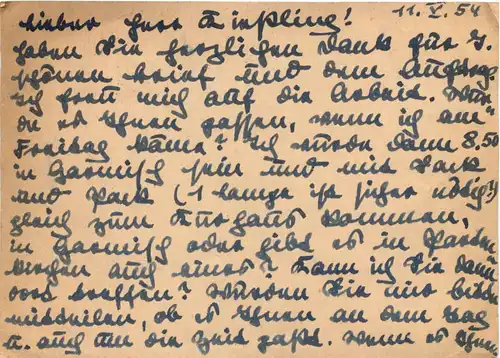 11. V. 54
Lieber Herr Kiessling!
Haben Sie herzlichen Dank für I.
schönen Brief und den Auftrag.
Ich freu mich auf die Arbeit. Wür-
de es Ihnen passen, wenn ich am
Freitag käme? Ich würde dann 8,50
in Garmisch sein und mit Sack
und Pack (1 Lampe ist sicher nötig?)
gleich zum Kurhaus kommen,
in Garmisch oder gibt es in Parten-
kirchen auch eines? Kann ich Sie dann
dort treffen? Würden Sie mir bitte
mitteilen, ob es Ihnen an dem Tag
u. auch um die Zeit passt. Wenn es Ihnen